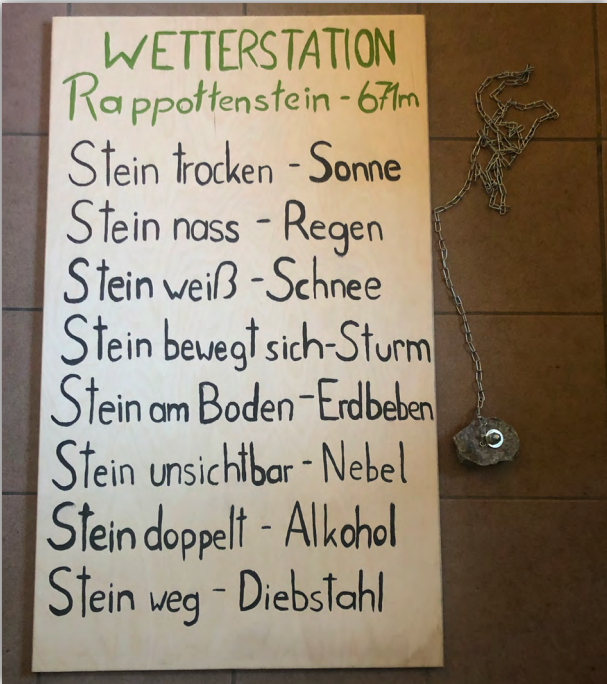 WETTERSTATION
Rappottenstein - 671m
Stein trocken - Sonne
Stein nass - Regen
Stein weiß - Schnee
Stein bewegt sich - Sturm
Stein am Boden - Erdbeben
Stein unsichtbar - Nebel
Stein doppelt - Alkohol
Stein weg - Diebstahl